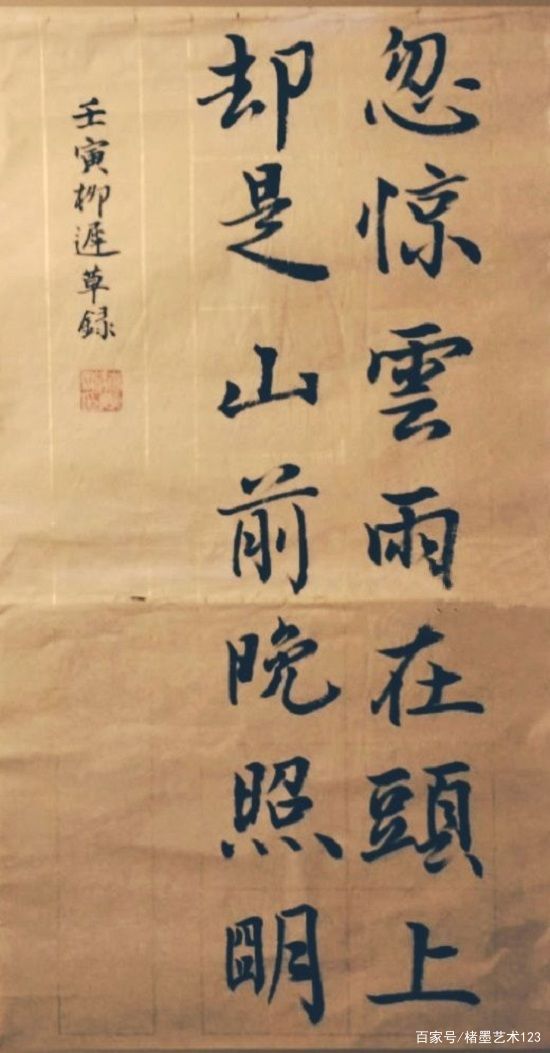 忽惊雲雨在頭上
却是山前晚照明
壬寅柳遲草録
百家号/楮墨艺术123